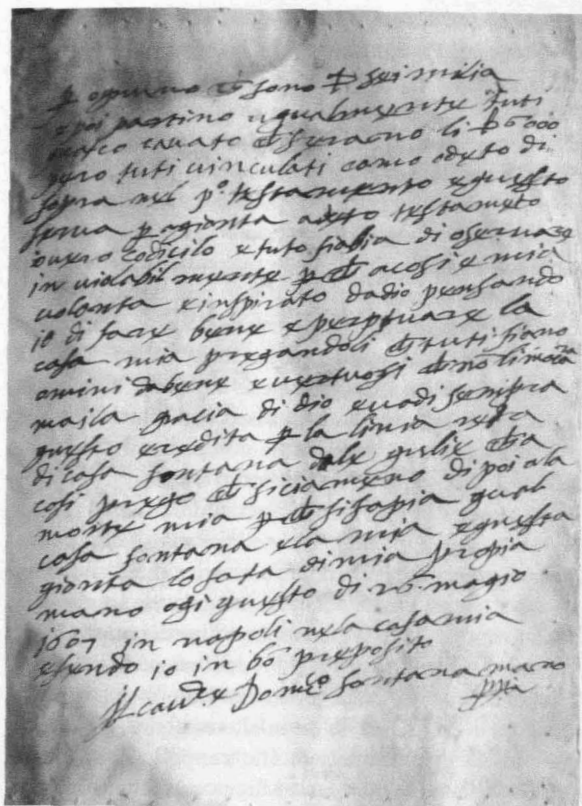 p ogniuno che sono ▽ sei milia
e poi partino ugualmente tuti
cavato che serano li ▽ 6000
pero tuti vinculati como adeto di
sopra nel p.º testamento e questo
serva p agionta adeto testameto
overo codicilo e tuto siabia di oservare
in violabilmente p che acosi e mia
volonta e inspirato dadio pensando
io di fare bene e perptuare la
casa mia pregandoli che tuti siano
omini dabene e vertuosi che no li
mai la gracia di dio e vadi sempra
questo eredita p la linia reta
di casa fontana dale gulie che a
cosi prego che si ciameno di poi ala
morte mia p che si sapia qual
casa fontana e la mia e questa
gionta lo fata di mia propia
mano ogi questo di 26 magio
1607 in napoli nela casa mia
esendo io in bō preposito
Il cavd.e Dom.co fontana mano
ppia